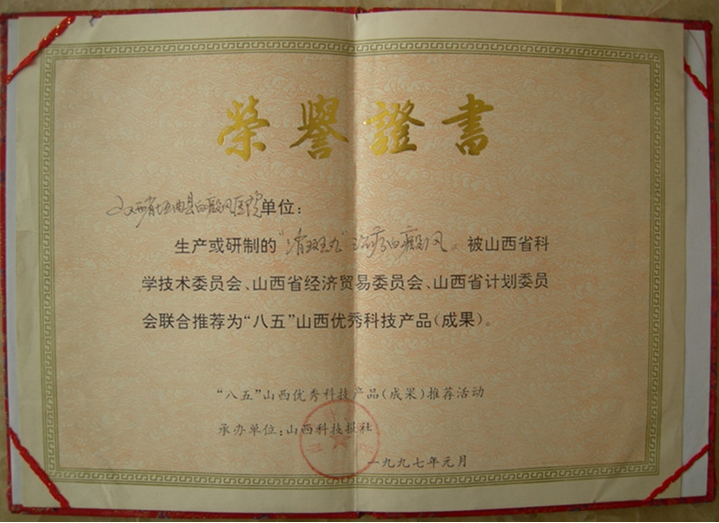 榮譽證書
山西省垣曲县白癜风医院单位：
生产或研制的“消斑丸”治疗白癜风。被山西省科
学技术委员会、山西省经济贸易委员会、山西省计划委员
会联合推荐为“八五”山西优秀科技产品(成果)。
“八五”山西优秀科技产品(成果)推荐活动
承办单位:山西科技报社
一九九七年元月